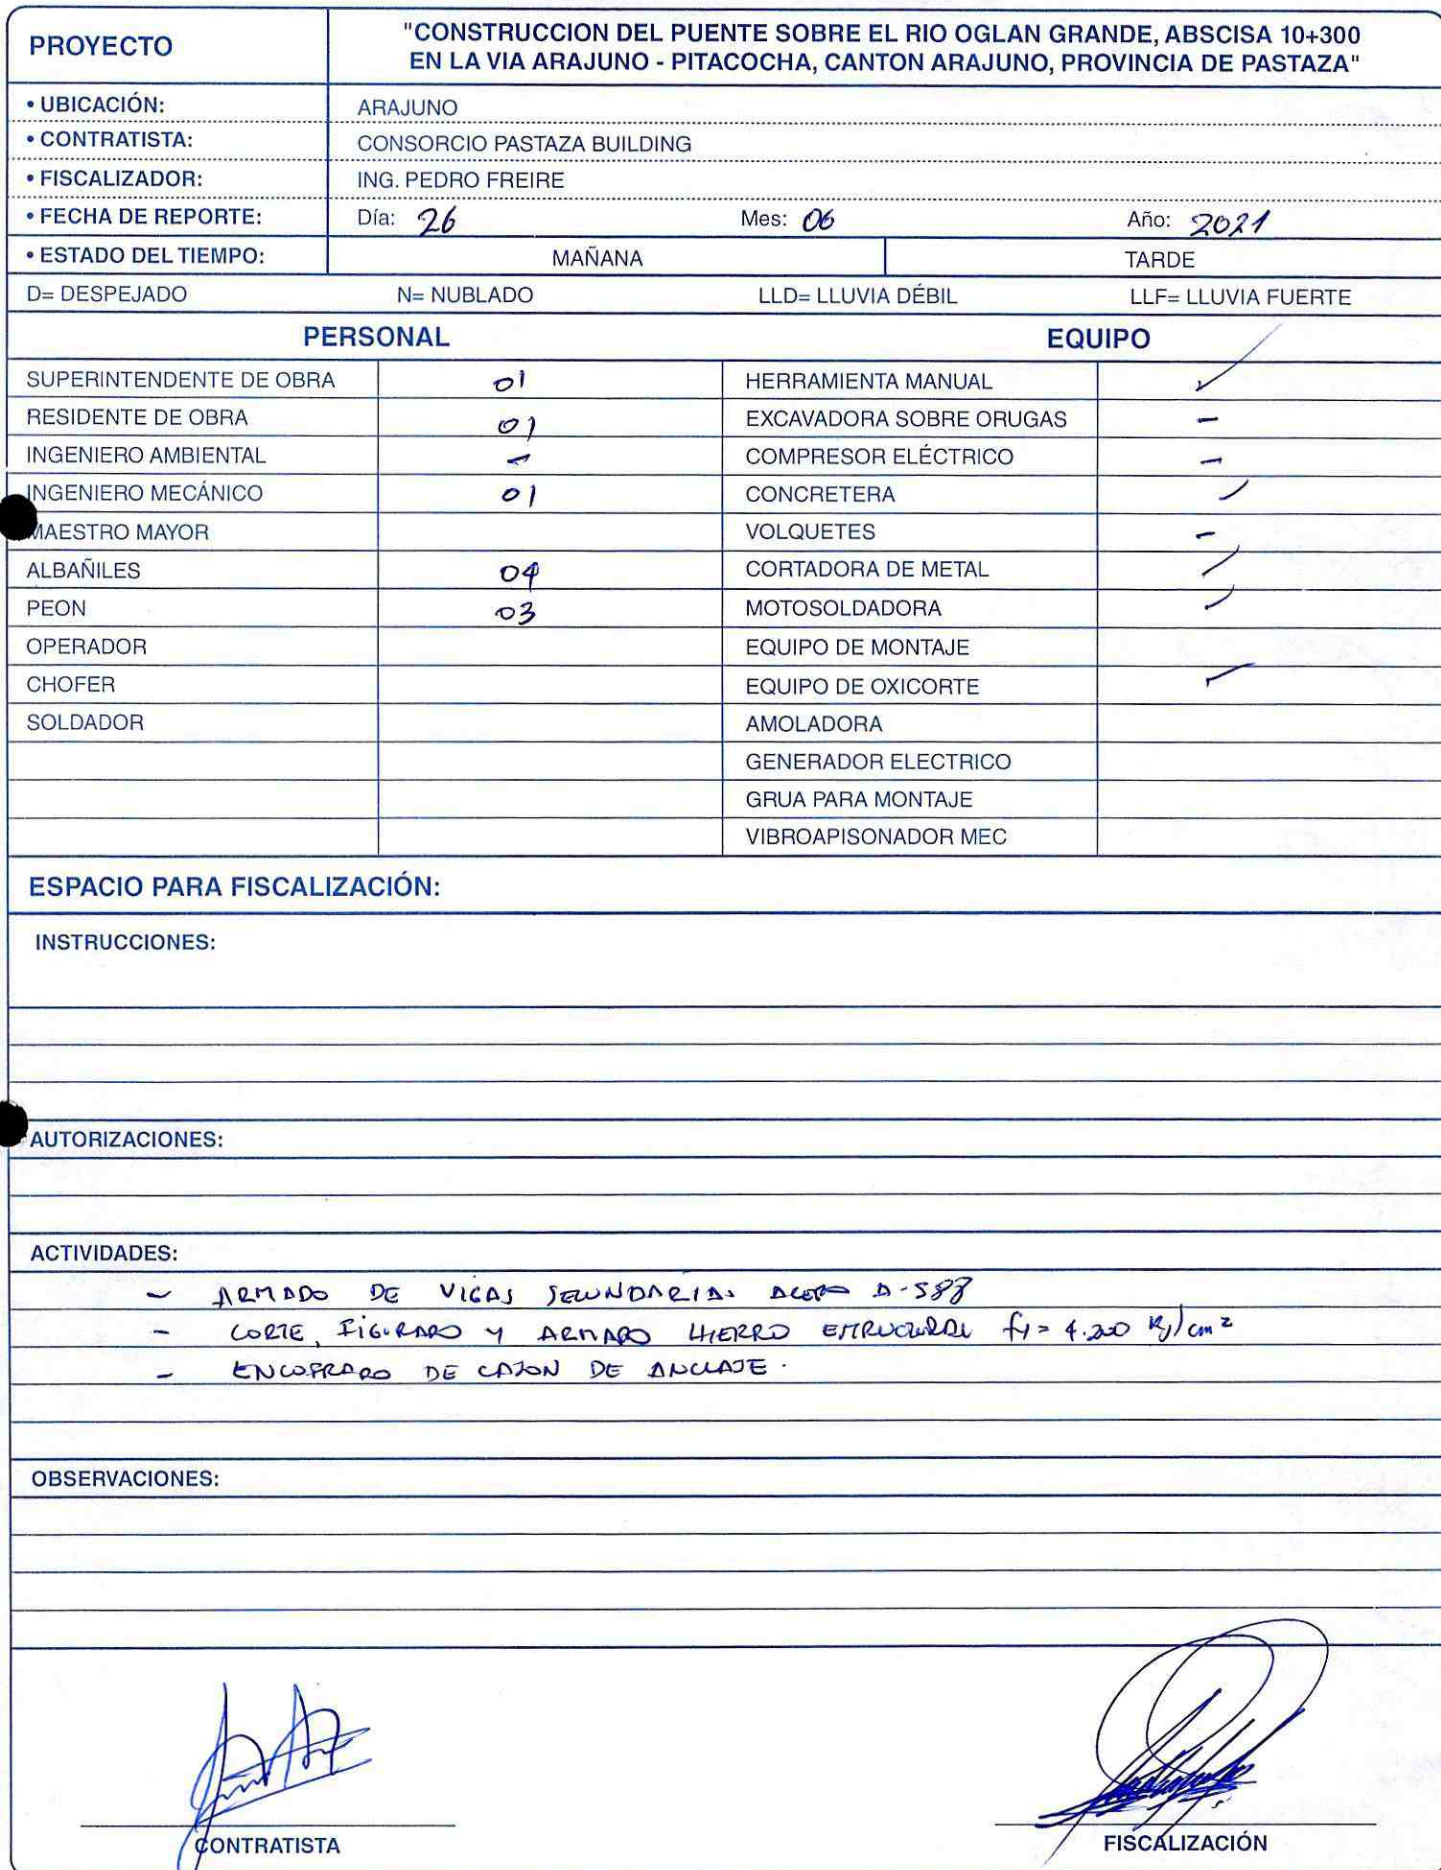 PROYECTO
"CONSTRUCCION DEL PUENTE SOBRE EL RIO OGLAN GRANDE, ABSCISA 10+300
EN LA VIA ARAJUNO - PITACOCHA, CANTON ARAJUNO, PROVINCIA DE PASTAZA"
• UBICACIÓN: ARAJUNO
• CONTRATISTA: CONSORCIO PASTAZA BUILDING
• FISCALIZADOR: ING. PEDRO FREIRE
• FECHA DE REPORTE: Día: 26 Mes: 06 Año: 2021
• ESTADO DEL TIEMPO: MAÑANA TARDE
D= DESPEJADO N= NUBLADO LLD= LLUVIA DÉBIL LLF= LLUVIA FUERTE
PERSONAL EQUIPO
SUPERINTENDENTE DE OBRA 01 HERRAMIENTA MANUAL ✓
RESIDENTE DE OBRA 01 EXCAVADORA SOBRE ORUGAS -
INGENIERO AMBIENTAL - COMPRESOR ELÉCTRICO -
INGENIERO MECÁNICO 01 CONCRETERA ✓
MAESTRO MAYOR VOLQUETES -
ALBAÑILES 04 CORTADORA DE METAL ✓
PEON 03 MOTOSOLDADORA ✓
OPERADOR EQUIPO DE MONTAJE
CHOFER EQUIPO DE OXICORTE ✓
SOLDADOR AMOLADORA
GENERADOR ELECTRICO
GRUA PARA MONTAJE
VIBROAPISONADOR MEC
ESPACIO PARA FISCALIZACIÓN:
INSTRUCCIONES:
AUTORIZACIONES:
ACTIVIDADES:
- ARMADO DE VIGAS SECUNDARIAS ACERO A-588
- CORTE, FIGURADO Y ARMADO HIERRO ESTRUCTURAL fy = 4.200 Kg/cm²
- ENCOFRADO DE CAJON DE ANCLAJE.
OBSERVACIONES:
CONTRATISTA FISCALIZACIÓN